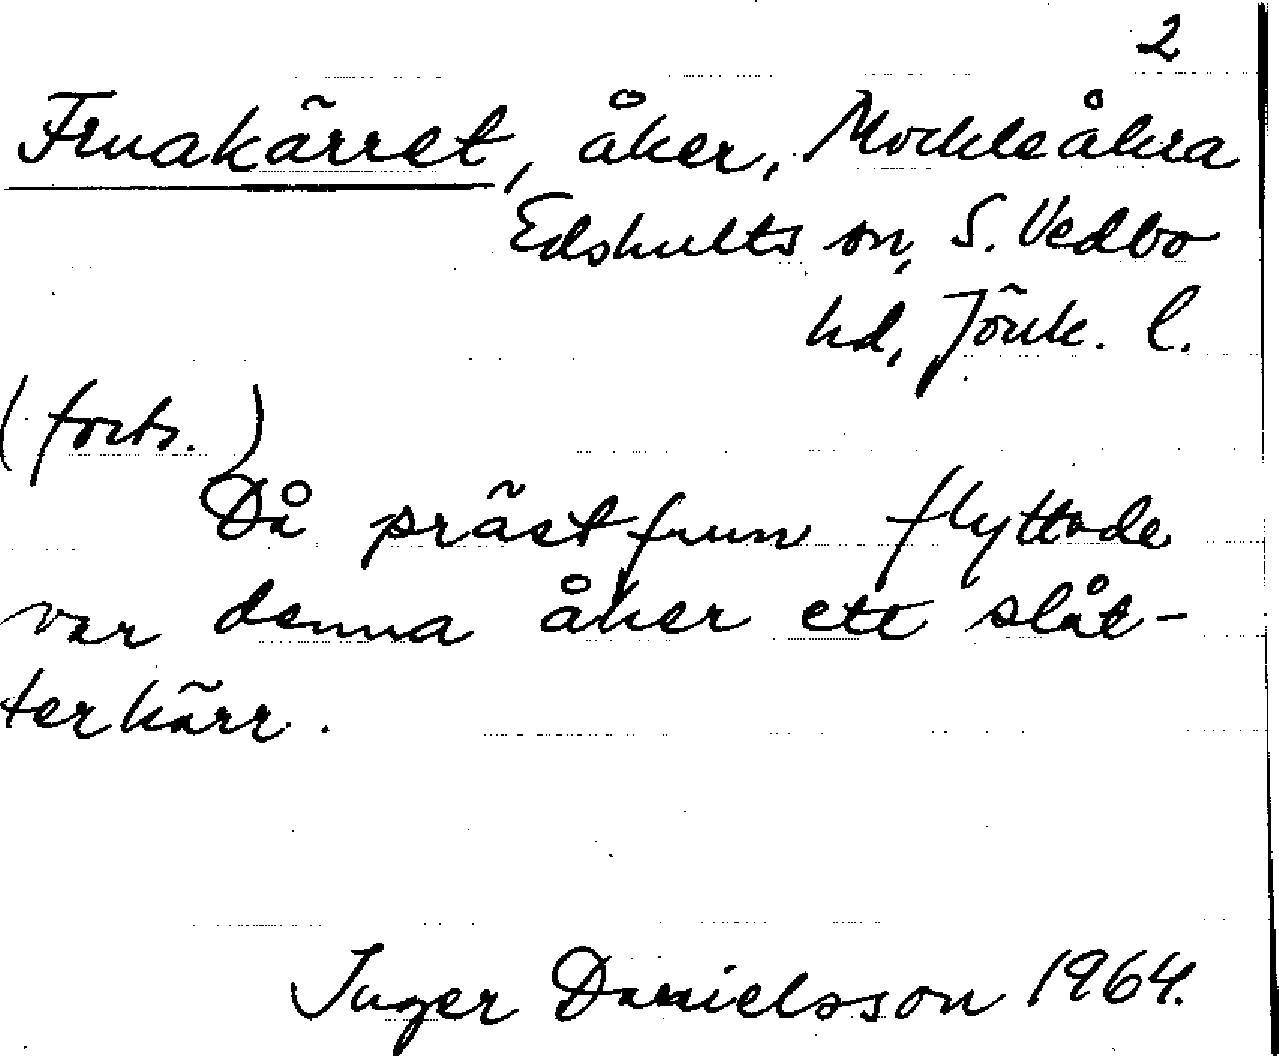 2
Fruakärret, åker, Mockleåkra
Edshults sn, S. Vedbo
hd, Jönk. l.
(forts.)
Då prästfrun flyttade
var denna åker ett slåt-
terkärr.
Inger Danielsson 1964.